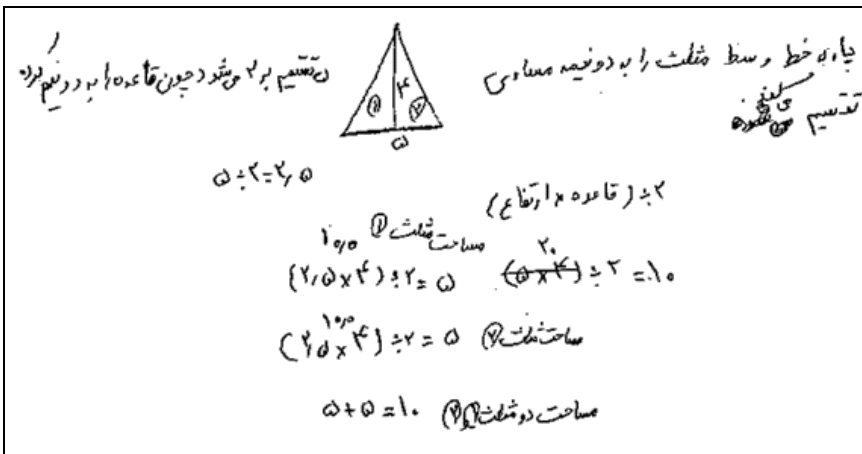 پاره خط وسط مثلث را به دو نیمه مساوی
تقسیم می‌کند
۵ تقسیم بر ۲ می‌شود چون قاعده را به دو نیم کرده
① ۴ ②
۵
۵ ÷ ۲ = ۲٫۵
(قاعده × ارتفاع) ÷ ۲
۲۰
(۵ × ۴) ÷ ۲ = ۱۰
مساحت مثلث ①
۱۰٫۰
(۲٫۵ × ۴) ÷ ۲ = ۵
۱۰٫۰
(۲٫۵ × ۴) ÷ ۲ = ۵ مساحت مثلث ②
۵ + ۵ = ۱۰ مساحت دو مثلث ① و ②